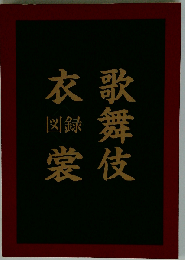 歌舞伎
衣裳
図録